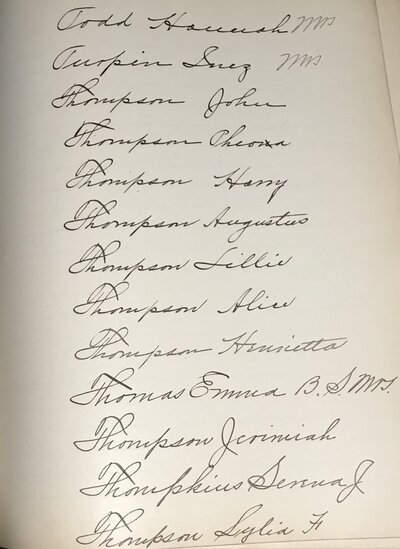 Todd Hannah Mrs
Turpin Inez Mrs
Thompson John
Thompson Pheona
Thompson Harry
Thompson Augustus
Thompson Lillie
Thompson Alice
Thompson Henrietta
Thomas Emma B. S. Mrs.
Thompson Jerimiah
Thompkins Serena J
Thompson Lylia F